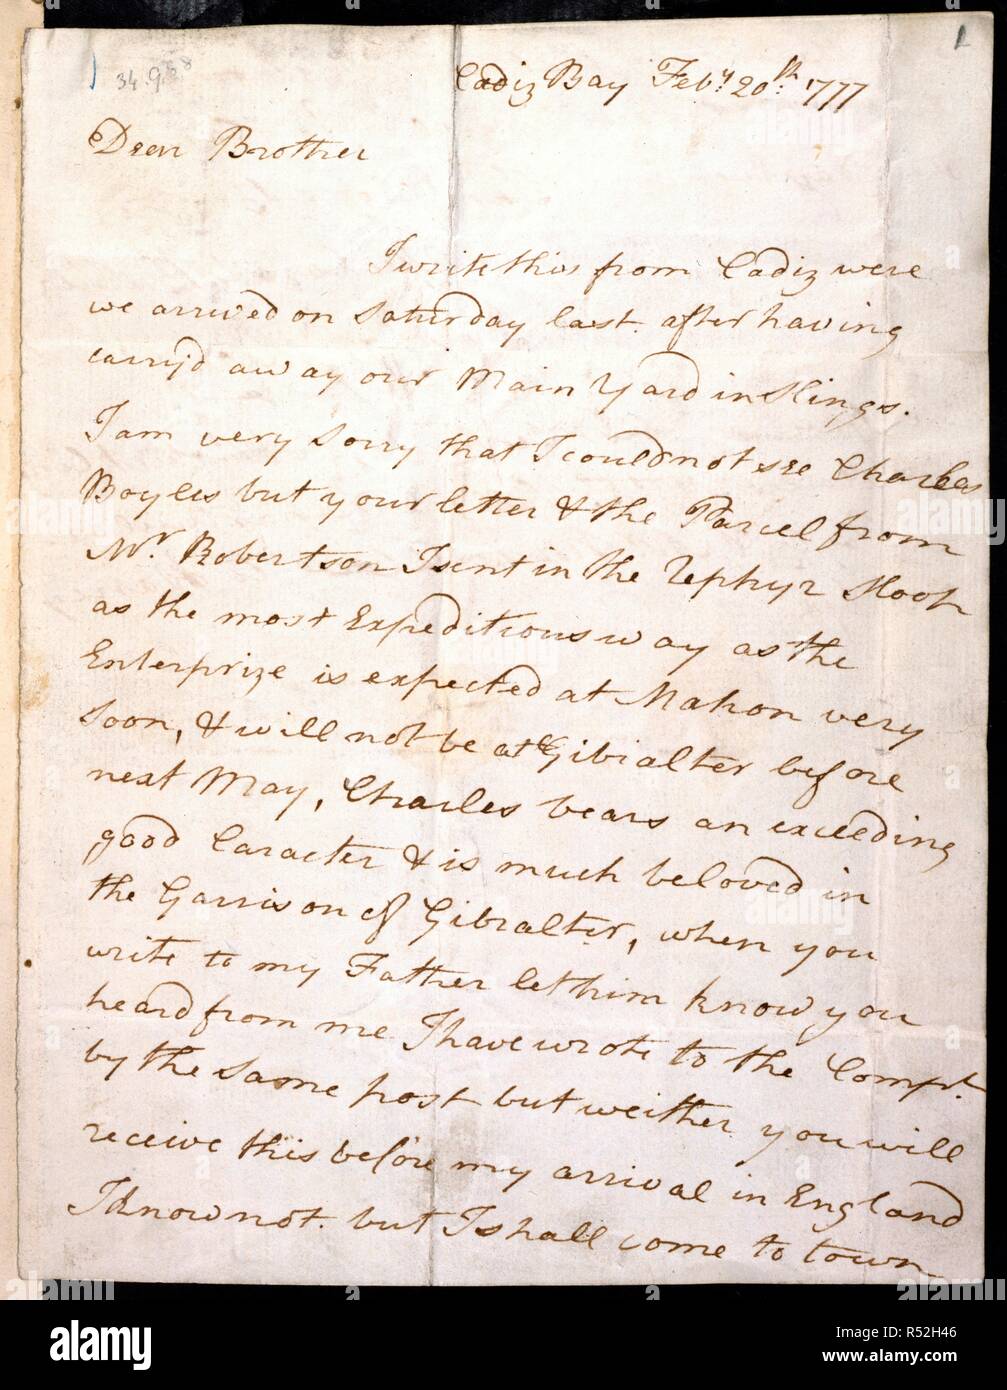 34.9.28
1
Cadiz Bay Feby 20th 1777
Dear Brother
I write this from Cadiz were
we arrived on Saturday last. after having
carry'd away our Main Yard in Slings.
I am very Sorry that I could not see Charles
Boyles but your letter & the Parcel from
Mr Robertson I sent in the Zephyr Sloop
as the most Expeditious way as the
Enterprize is expected at Mahon very
Soon, & will not be at Gibralter before
next May, Charles bears an exceeding
good Caracter & is much beloved in
the Garrison of Gibralter, when you
write to my Father let him know you
heard from me I have wrote to the Compt.
by the same post but weither you will
receive this before my arrival in England
I know not. but I shall come to town
alamy
Image ID: R52H46
www.alamy.com